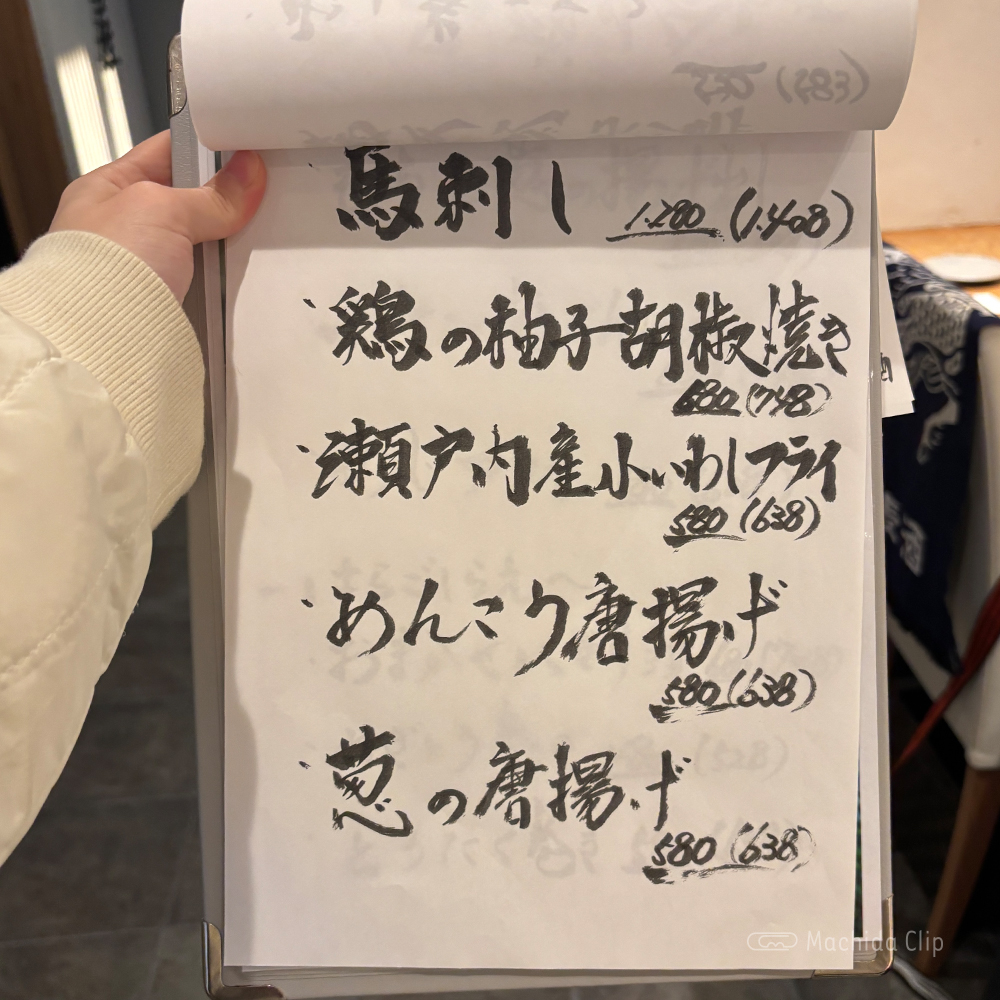 馬刺し 1.280 (1.408)
鶏の柚子胡椒焼き
680 (748)
瀬戸内産小いわしフライ
580 (638)
めんこり唐揚げ
580 (638)
葱の唐揚げ
580 (638)
Machida Clip